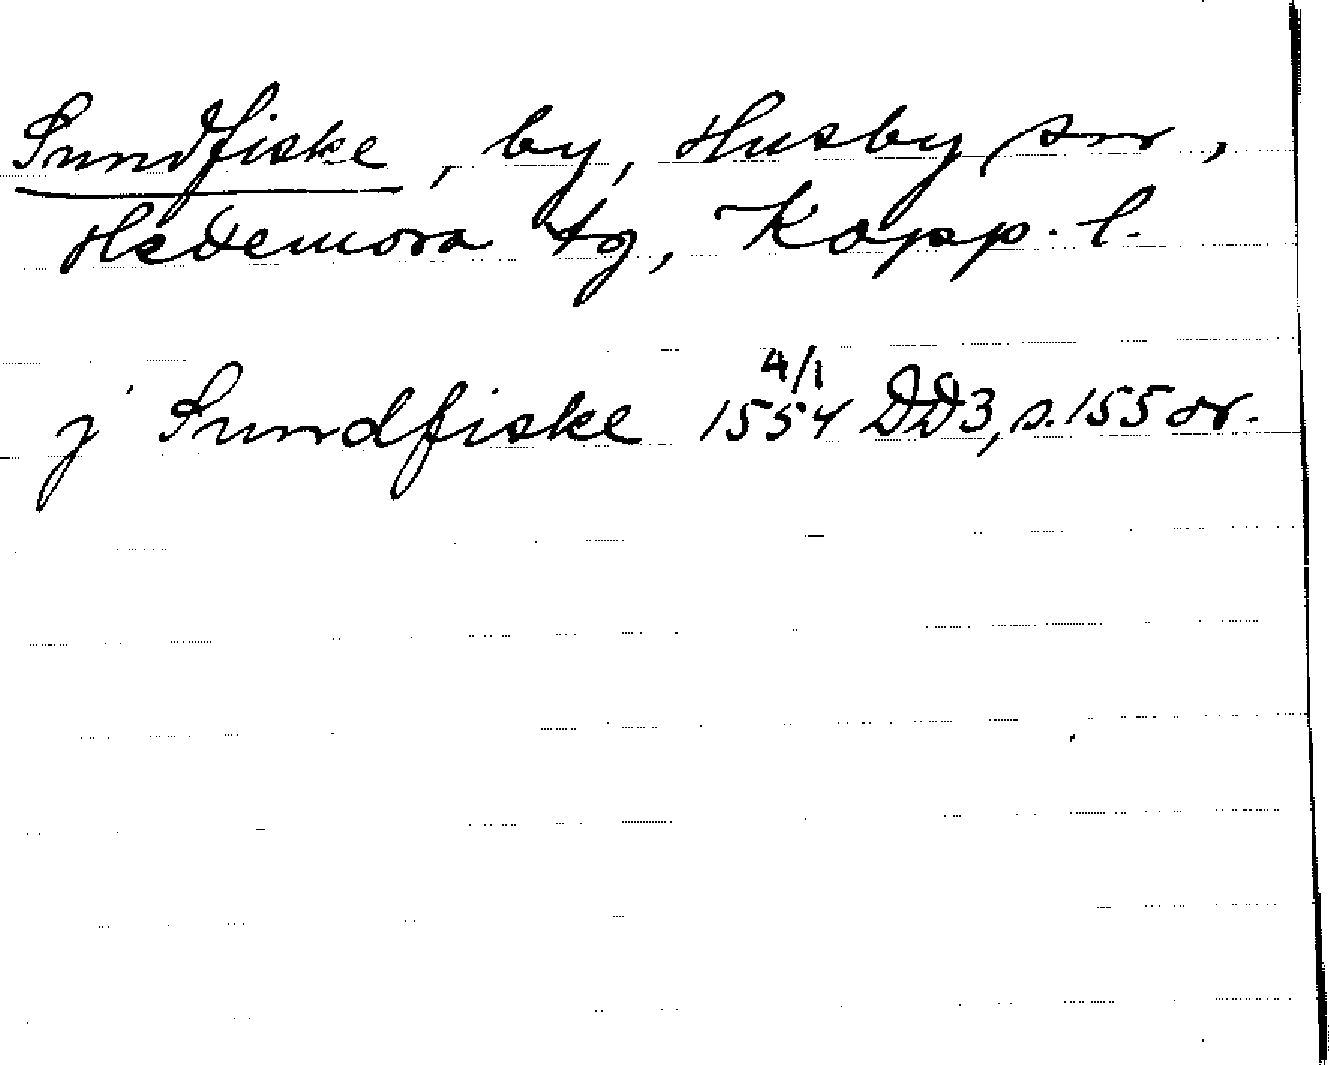 Sundfiske, by, Husby sn,
Hedemora tg, Kopp. l.
j Sundfiske 1554 4/1 DD3, s. 155 or.